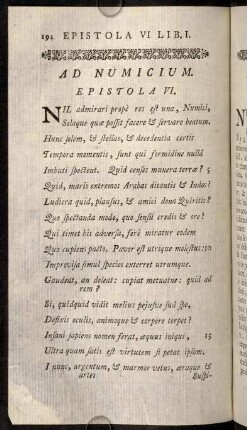 194 EPISTOLA VI LIB. I.
AD NUMICIUM.
EPISTOLA VI.
NIL admirari propè res est una, Numici,
Solaque quæ possit facere & servare beatum.
Hunc solem, & stellas, & decedentia certis
Tempora momentis, sunt qui formidine nullâ
Imbuti spectent. Quid censes munera terræ? 5
Quid, maris extremos Arabas ditantis & Indos?
Ludicra quid, plausus, & amici dona Quiritis?
Quo spectanda modo, quo sensu credis & ore?
Qui timet his adversa, ferè miratur eodem
Quo cupiens pacto. Pavor est utrique molestus: 10
Improvisa simul species exterret utrumque.
Gaudeat, an doleat: cupiat metuatne: quid ad
rem?
Si, quidquid vidit melius pejusve suâ spe,
Defixis oculis, animoque & corpore torpet?
Insani sapiens nomen ferat, æquus iniqui, 15
Ultra quam satis est virtutem si petat ipsam.
I nunc, argentum, & marmor vetus, æraque &
artes
Suspi-